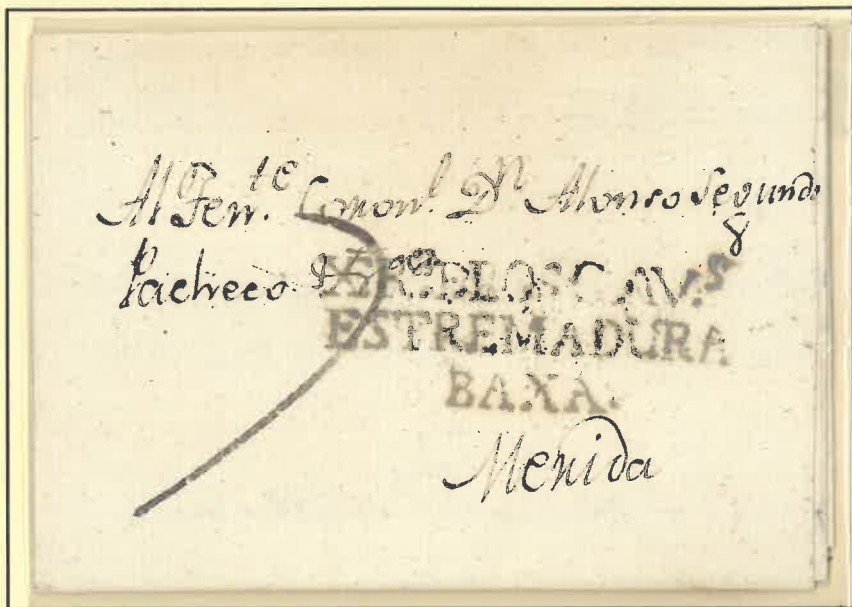 Al Ten.te Coron.l Dn Alonso Segundo
Pacheco
XER. DE LOS CAV.s
ESTREMADURA
BAXA.
Merida